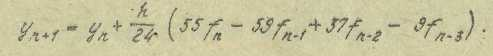 yₙ₊₁ = yₙ + h/24 (55fₙ - 59fₙ₋₁ + 37fₙ₋₂ - 9fₙ₋₃).